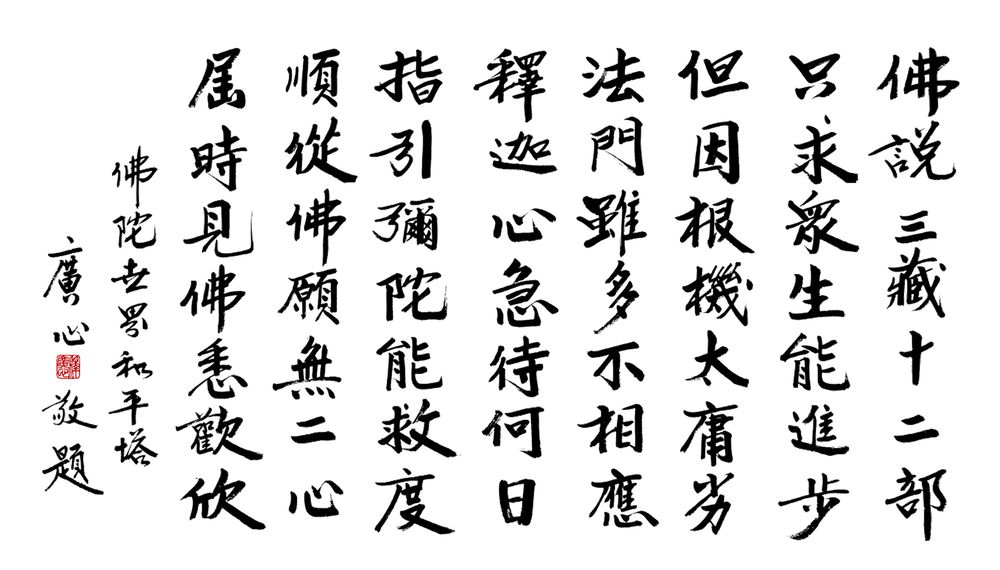 佛說三藏十二部
只求眾生能進步
但因根機太庸劣
法門雖多不相應
釋迦心急待何日
指引彌陀能救度
順從佛願無二心
屆時見佛悉歡欣
佛陀世界和平塔
廣心敬題